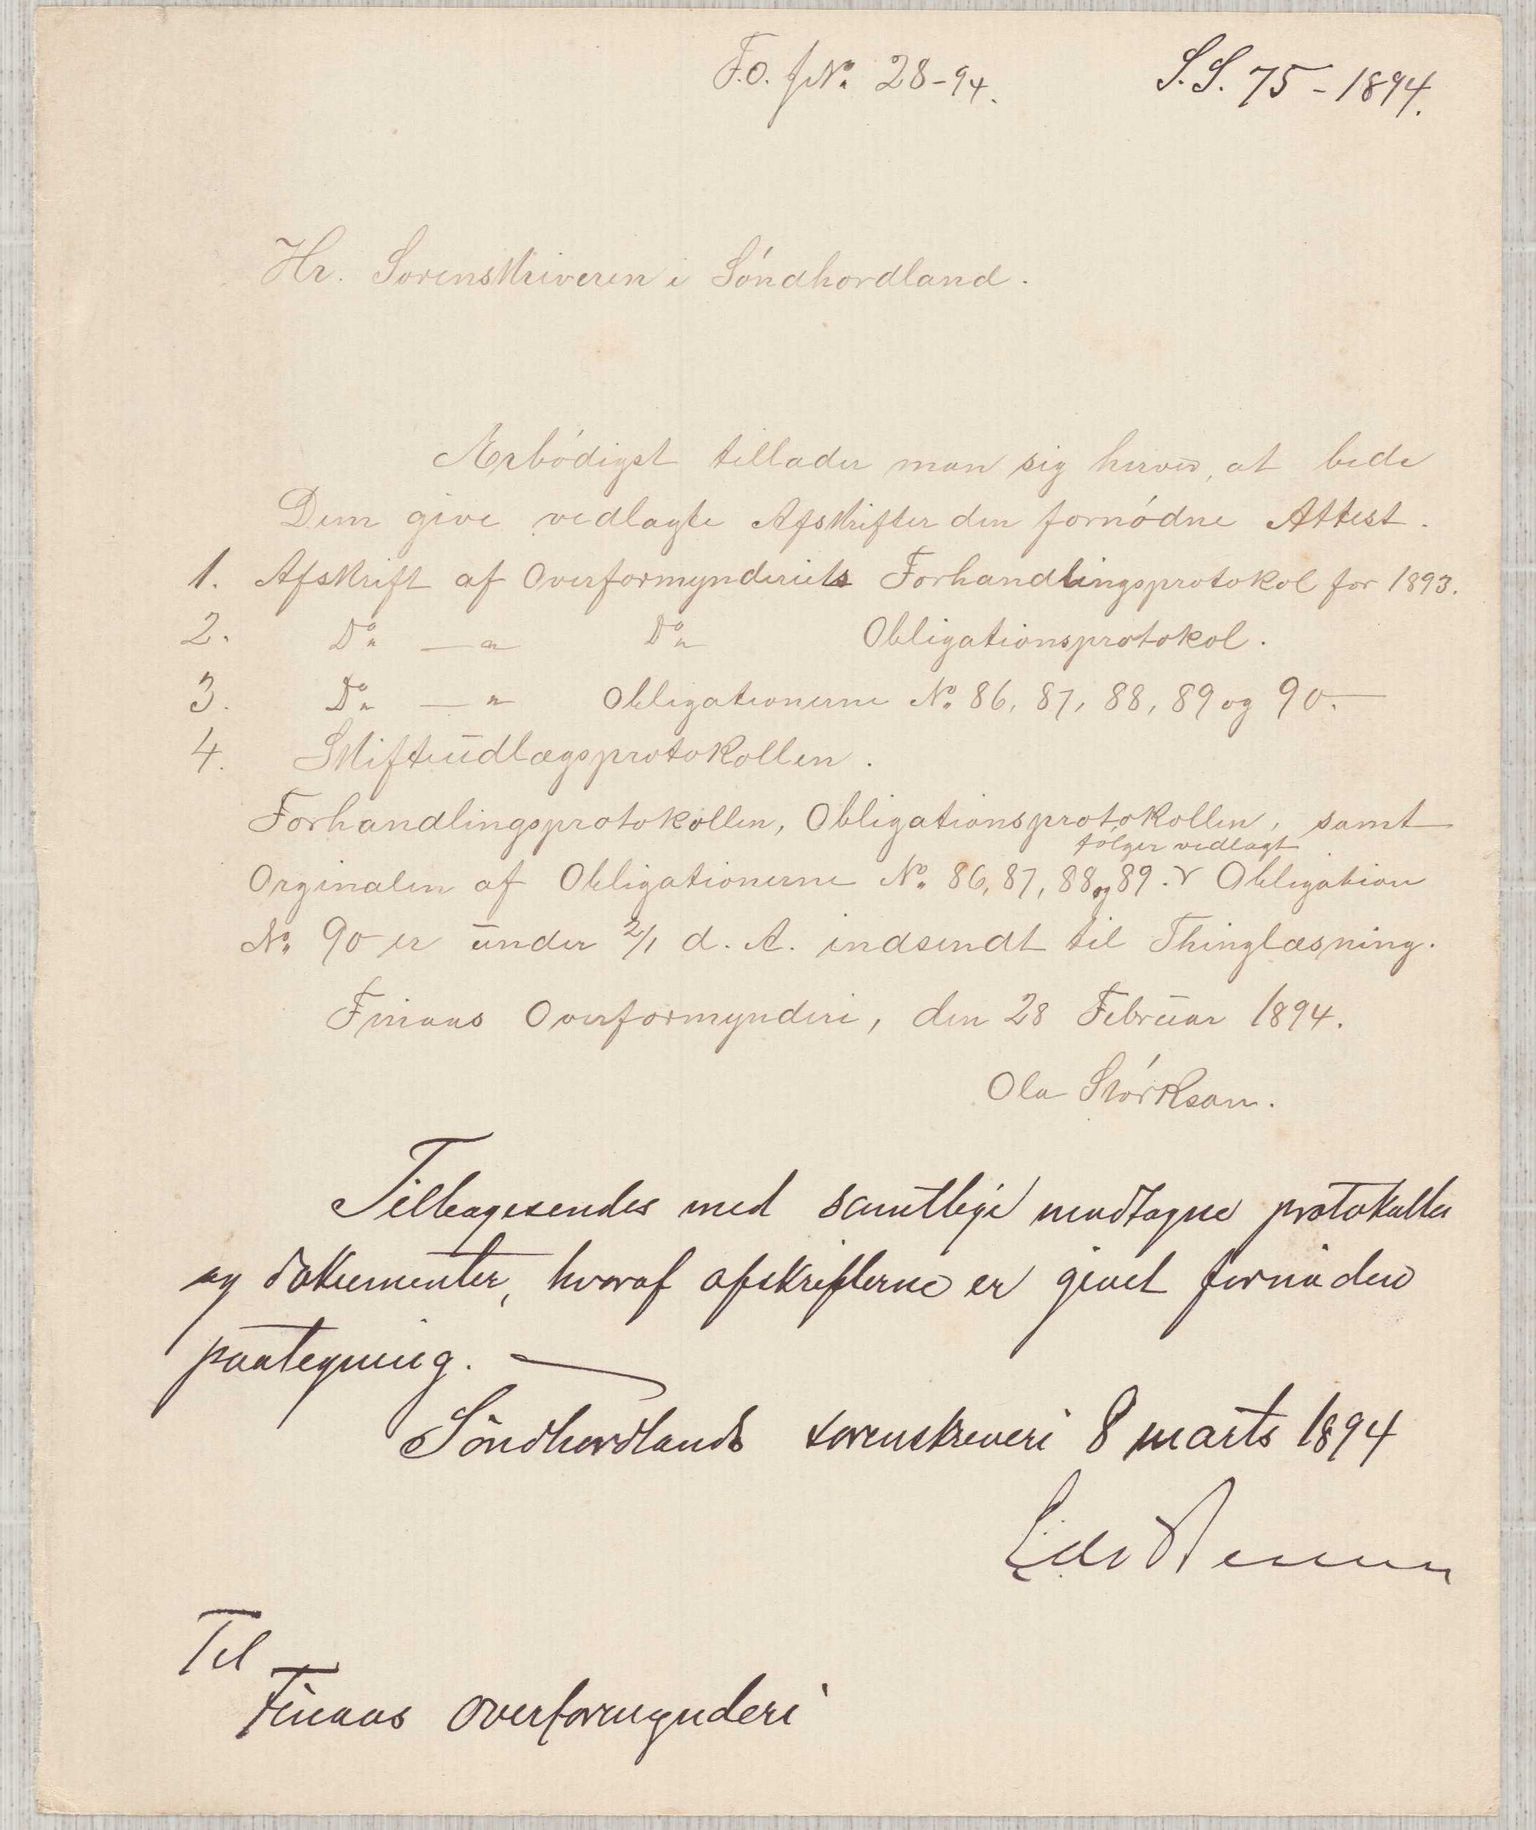 F.O. J№ 28-94.
S.S. 75 - 1894.
Hr. Sorenskriveren i Söndhordland.
Ærbödigst tillader man sig herved, at bede
Dem give vedlagte Afskrifter den fornödne Attest.
1. Afskrift af Overformynderiets Forhandlingsprotokol for 1893.
2. Do — " Do Obligationsprotokol.
3. Do — " Obligationerne № 86, 87, 88, 89 og 90.—
4. Skifteudlægsprotokollen.
Forhandlingsprotokollen, Obligationsprotokollen, samt
fölger vedlagt
Orginalen af Obligationerne № 86, 87, 88 og 89. Obligation
№ 90 er under 2/1 d. A. indsendt til Thinglæsning.
Finaas Overformynderi, den 28 Februar 1894.
Ola Störkson.
Tilbagesendes med samtlige modtagne protokoller
og dokumenter, hvoraf afskrifterne er givet fornöden
paategning. —
Söndhordlands sorenskriveri 8 marts 1894
Til
Finaas overformynderi